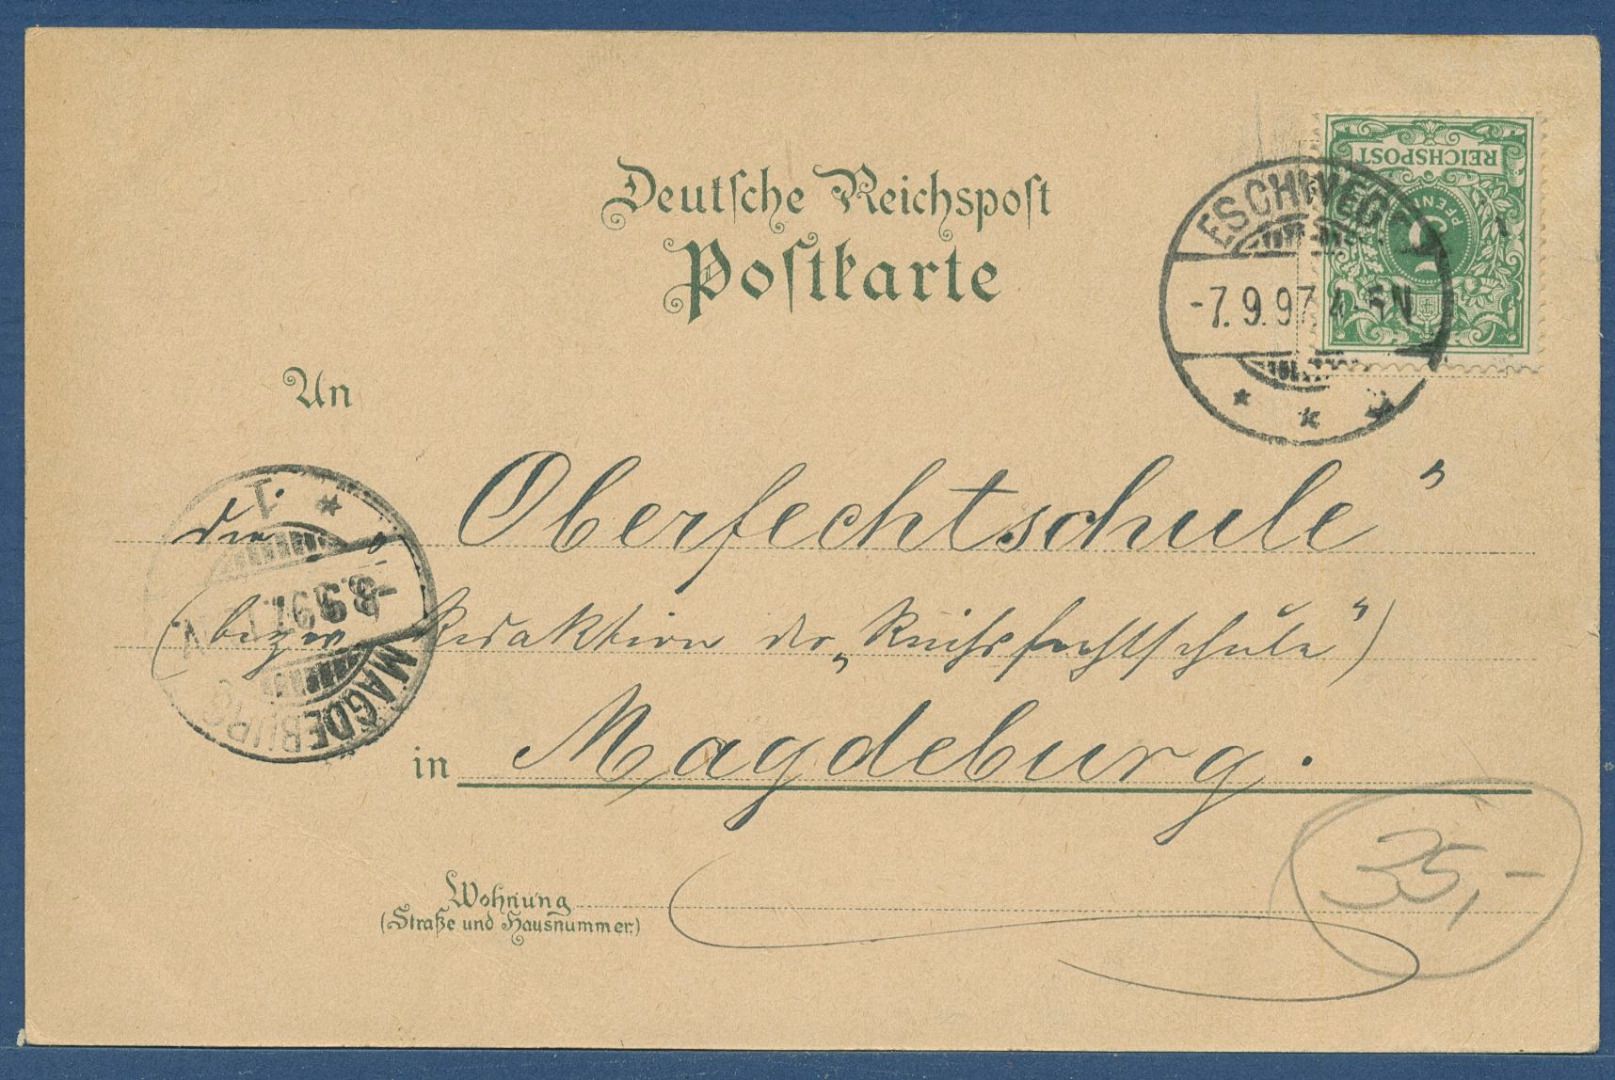 Deutsche Reichspost
Postkarte
REICHSPOST
5
PFENNIG
ESCHWEGE
-7.9.97. 4-5N
An
die „Oberfechtschule"
(bezw. Redaktion der „Reichsfechtschule")
in Magdeburg.
MAGDEBURG
1
-8.9.97.
V
Wohnung
(Straße und Hausnummer.)
35,-